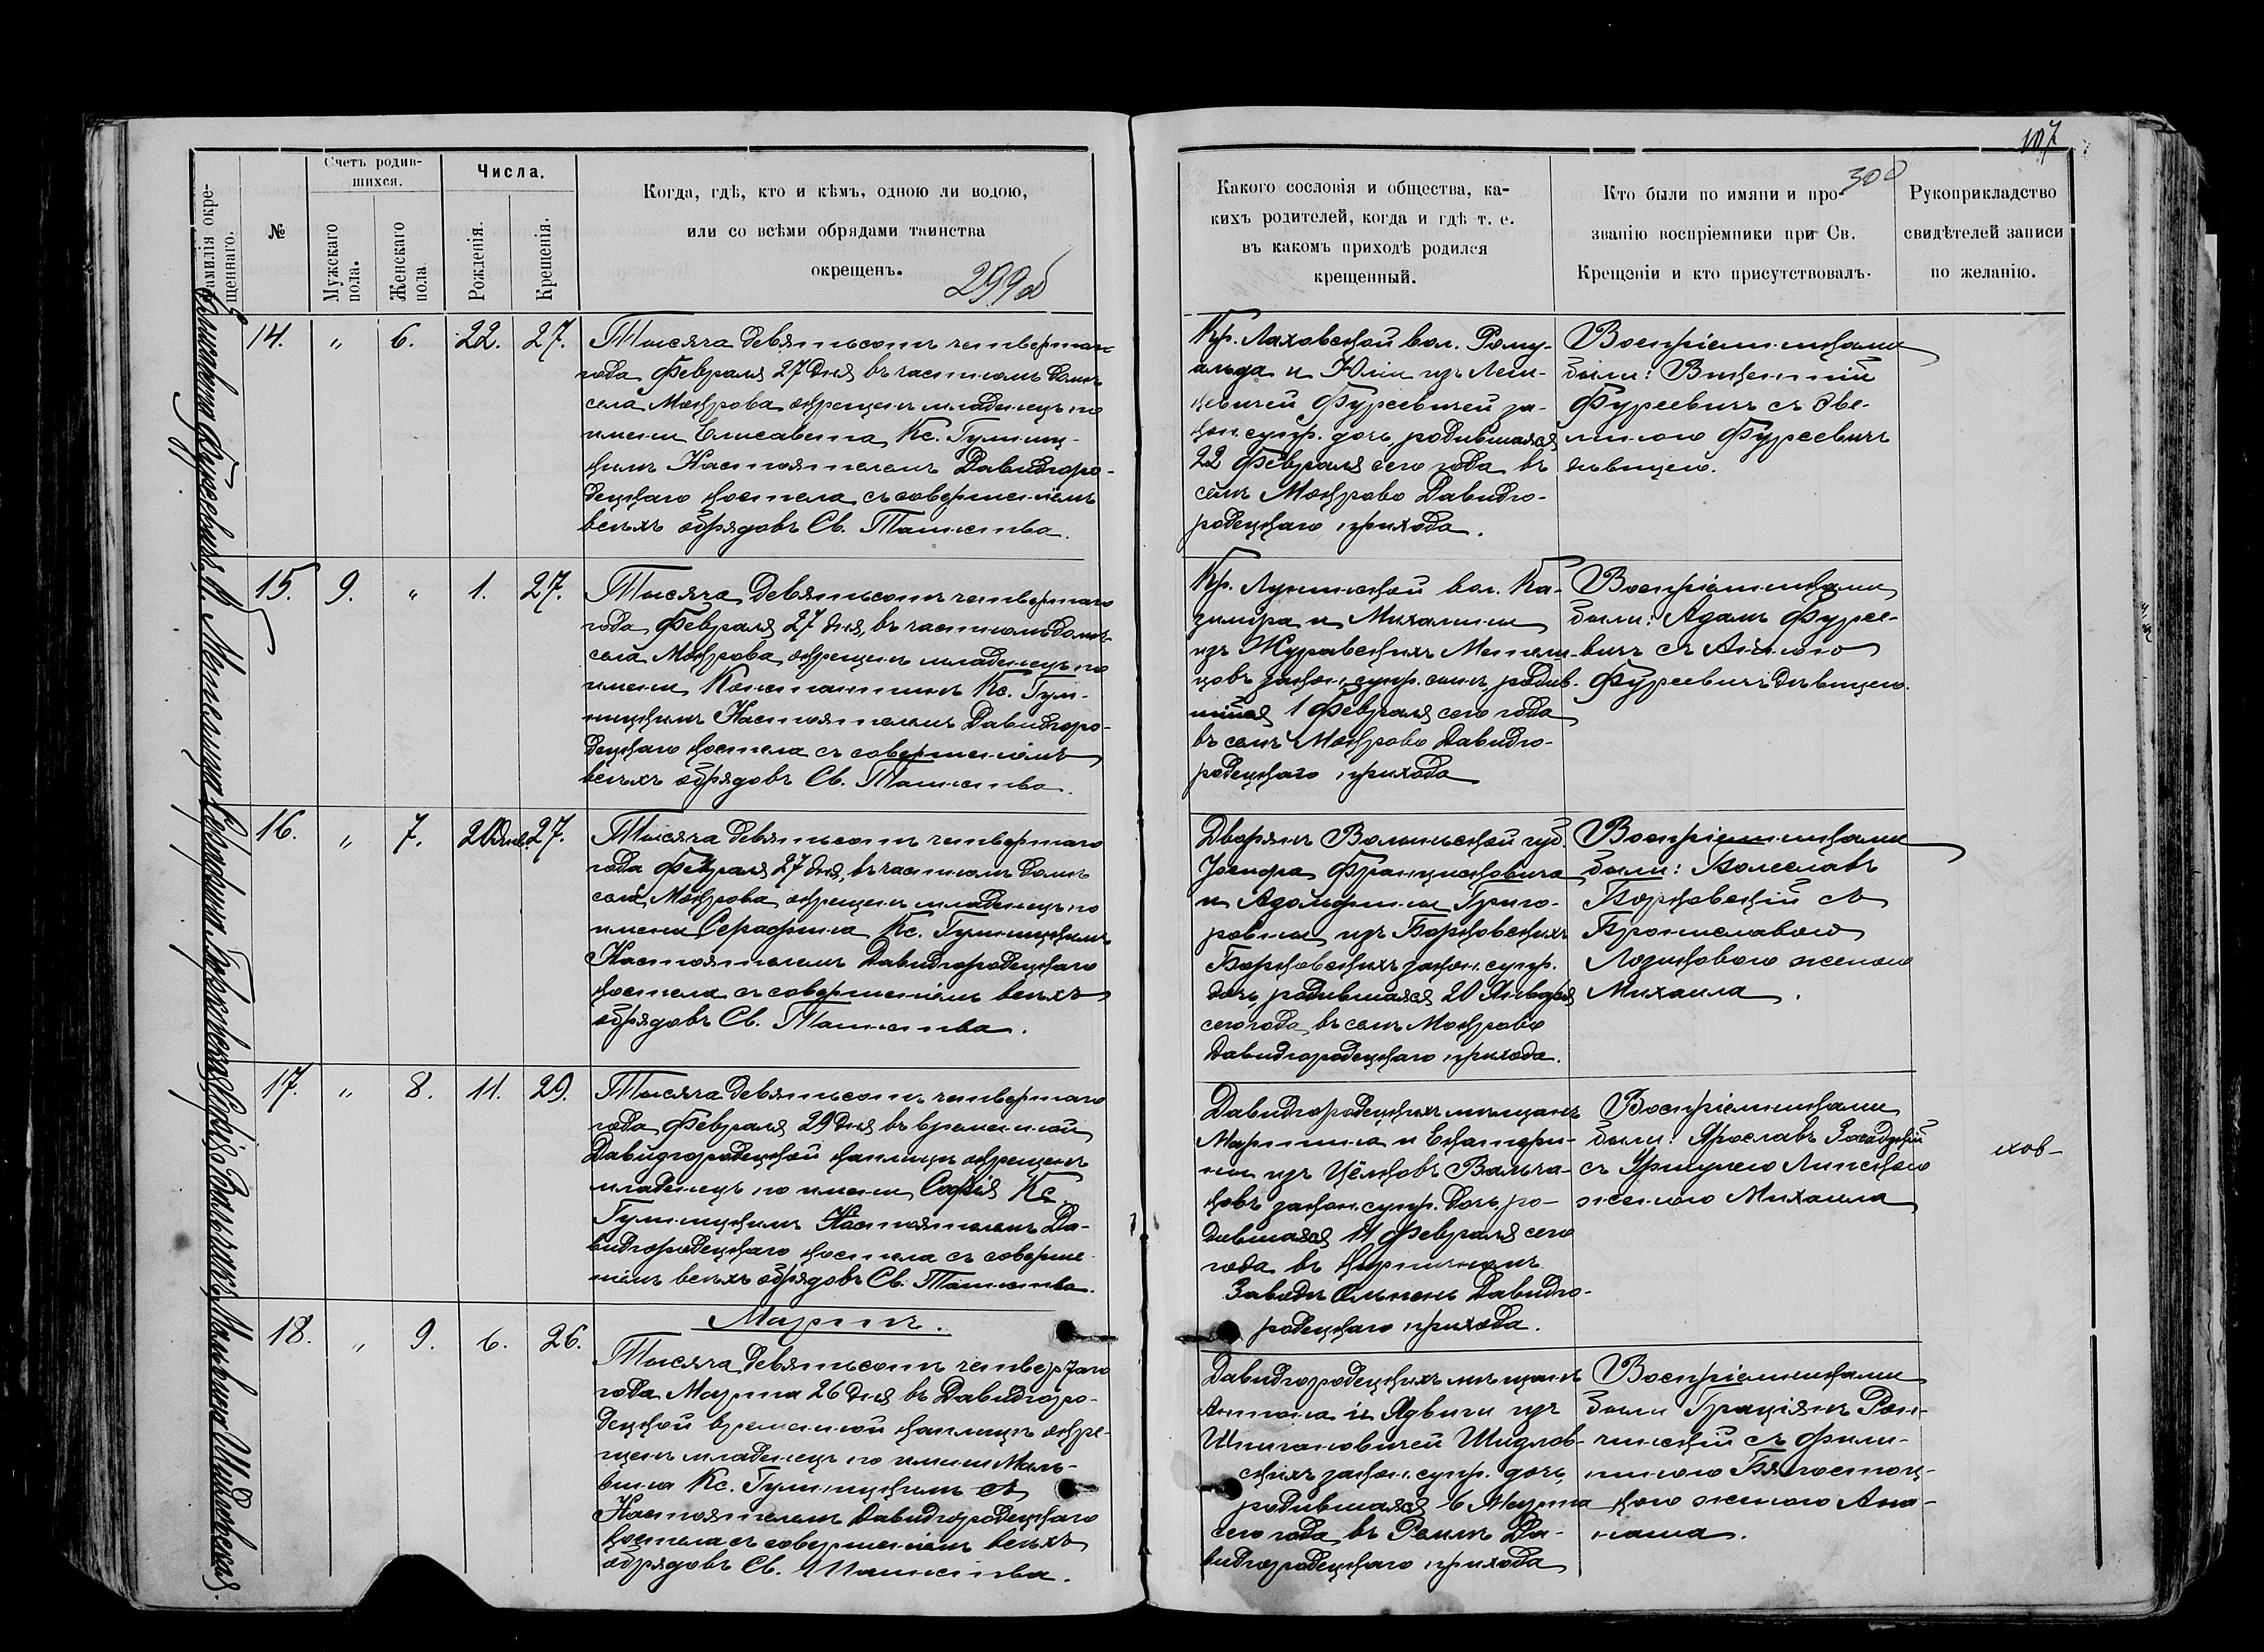 107
300
299об
Фамилія окре-
щеннаго.
№
Счетъ родив-
шихся.
Мужскаго
пола.
Женскаго
пола
Числа.
Рожденія.
Крещенія.
Когда, гдѣ, кто и кѣмъ, одною ли водою,
или со всѣми обрядами таинства
окрещенъ.
Какого сословія и общества, ка-
кихъ родителей, когда и гдѣ т. е.
въ какомъ приходѣ родился
крещенный.
Кто были по имяни и про-
званію воспріемники при Св.
Крещеніи и кто присутствовалъ.
Рукоприкладство
свидѣтелей записи
по желанію.
14. " 6. 22. 27.
Тысяча девятьсотъ четвертаго
года Февраля 27 дня въ частномъ домѣ
села Мокрова окрещенъ младенецъ по
имени Елисавета Кс. Гумниц-
кимъ Настоятелемъ Давидгоро-
децкаго костела съ совершеніемъ
всѣхъ обрядовъ Св. Таинства.
Кр. Лаховской вол. Рому-
альда и Юліи изъ
Фурсевичей за-
кон. супр. дочь, родившаяся
22 Февраля сего года въ
селѣ Мокрово Давидго-
родецкаго прихода.
Воспріемниками
были: Викентій
Фурсевичъ съ Эве-
линою Фурсевичъ
дѣвицею.
15. 9. " 1. 27.
Тысяча девятьсотъ четвертаго
года Февраля 27 дня, въ частномъ домѣ
села Мокрова окрещенъ младенецъ по
имени Константинъ Кс. Гум-
ницкимъ Настоятелемъ Давидгоро-
децкаго костела съ совершеніемъ
всѣхъ обрядовъ Св. Таинства.
Кр. Лунинской вол. Ка-
зимира и Михалины
изъ Журавскихъ
закон. супр. сынъ, родив-
шійся 1 Февраля сего года
въ селѣ Мокрово Давидго-
родецкаго прихода
Воспріемниками
были: Адамъ Фурсе-
вичъ съ Анною
Фурсевичъ дѣвицею.
16. " 7. 20 Янв. 27.
Тысяча девятьсотъ четвертаго
года Февраля 27 дня, въ частномъ домѣ
села Мокрова окрещенъ младенецъ по
имени Серафина Кс. Гумницкимъ
Настоятелемъ Давидгородецкаго
костела съ совершеніемъ всѣхъ
обрядовъ Св. Таинства.
Дворянъ Волынской губ.
Іосифа Францишковича
и Адольфины Григо-
ровны изъ Борковскихъ
Борковскихъ закон. супр.
дочь, родившаяся 20 Января
сего года въ селѣ Мокрово
Давидгородецкаго прихода.
Воспріемниками
были: Болеславъ
Борковскій съ
Брониславою
женою
Михаила.
17. " 8. 11. 29.
Тысяча девятьсотъ четвертаго
года Февраля 29 дня въ временной
Давидгородецкой каплицѣ окрещенъ
младенецъ по имени Софія Кс.
Гумницкимъ Настоятелемъ Да-
видгородецкаго костела съ соверше-
ніемъ всѣхъ обрядовъ Св. Таинства.
Давидгородецкихъ мѣщанъ
Мартина и Екатери-
ны изъ
законн. супр. дочь ро-
дившаяся 11 Февраля сего
года въ кирпичномъ
Заводѣ Ольпень Давидго-
родецкаго прихода.
Воспріемниками
были: Ярославъ
съ Уршулею Липскою
женою Михаила
хов-
Мартъ.
18. " 9. 6. 26.
Тысяча девятьсотъ четвертаго
года Марта 26 дня въ Давидгоро-
децкой временной каплицѣ окре-
щенъ младенецъ по имени Маль-
вина Кс. Гумницкимъ
Настоятелемъ Давидгородецкаго
костела съ совершеніемъ всѣхъ
обрядовъ Св. Таинства.
Давидгородецкихъ мѣщанъ
Антона и Ядвиги изъ
Шидлов-
скихъ закон. супр. дочь,
родившаяся 6 Марта
сего года въ Да-
видгородецкаго прихода
Воспріемниками
были Граціянъ
съ
женою Ана-